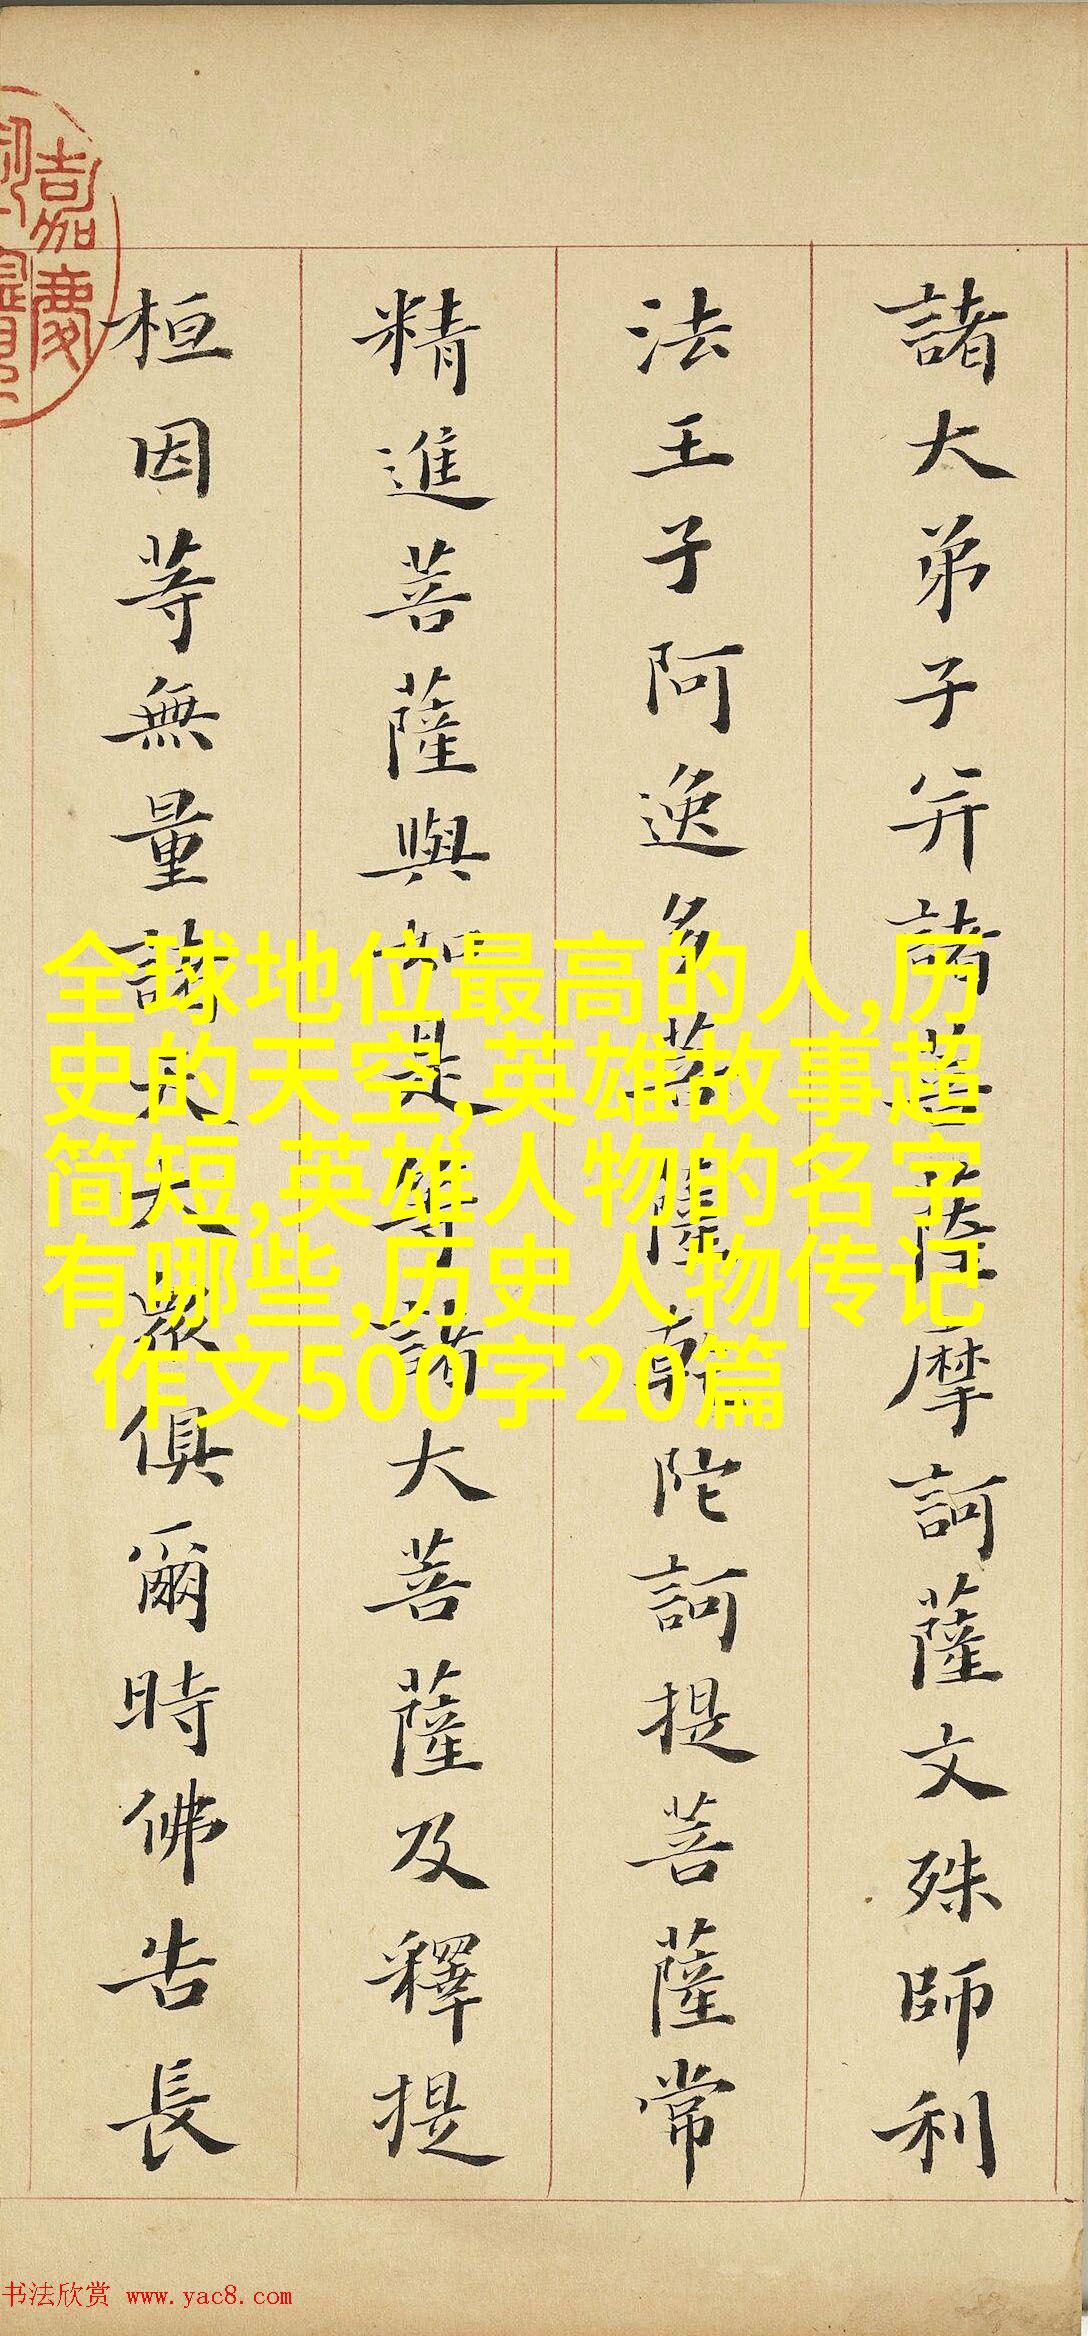 諸大弟子并諸菩薩摩訶薩文殊師利
法王子阿逸多菩薩乾陀訶提菩薩常
精進菩薩與如是等諸大菩薩及釋提
桓因等無量諸天大眾俱爾時佛告長
嘉慶
全球地位最高的人,历
史的天空,英雄故事超
简短,英雄人物的名字
有哪些,历史人物传记
作文500字20篇
书法欣赏 www.yac8.com